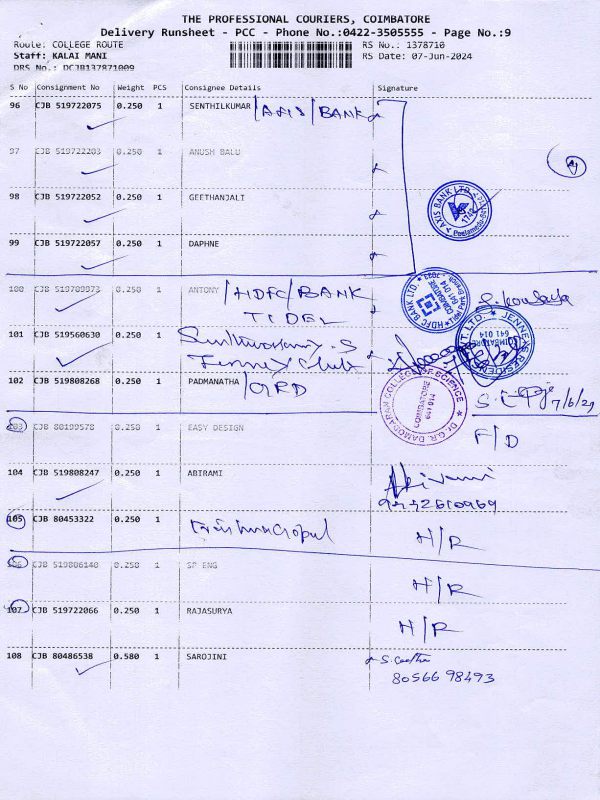 THE PROFESSIONAL COURIERS, COIMBATORE
Delivery Runsheet - PCC - Phone No.:0422-3505555 - Page No.:9
Route: COLLEGE ROUTE RS No.: 1378710
Staff: KALAI MANI RS Date: 07-Jun-2024
DRS No.: DCJB137871009
S No Consignment No Weight PCS Consignee Details Signature
96 CJB 519722075 0.250 1 SENTHILKUMAR /AXIS/BANK
97 CJB 519722203 0.250 1 ANUSH BALU
98 CJB 519722052 0.250 1 GEETHANJALI
AXIS BANK LTD.
99 CJB 519722057 0.250 1 DAPHNE
100 CJB 519789973 0.250 1 ANTONY /HDFC/BANK
TIDEL
HDFC BANK LTD. COIMBATORE 641 014
101 CJB 519560630 0.250 1
Jenney Club
COIMBATORE 641 014
102 CJB 519808268 0.250 1 PADMANATHA /GRD
7/6/24
Dr.G.R. DAMODARAN COLLEGE OF SCIENCE COIMBATORE 641 014
103 CJB 80199578 0.250 1 EASY DESIGN F/D
104 CJB 519808247 0.250 1 ABIRAMI Abirami
105 CJB 80453322 0.250 1 Krishnagopal H/R
106 CJB 519806140 0.250 1 SP ENG H/R
107 CJB 519722066 0.250 1 RAJASURYA H/R
108 CJB 80486538 0.580 1 SAROJINI S. Geetha
80566 98493